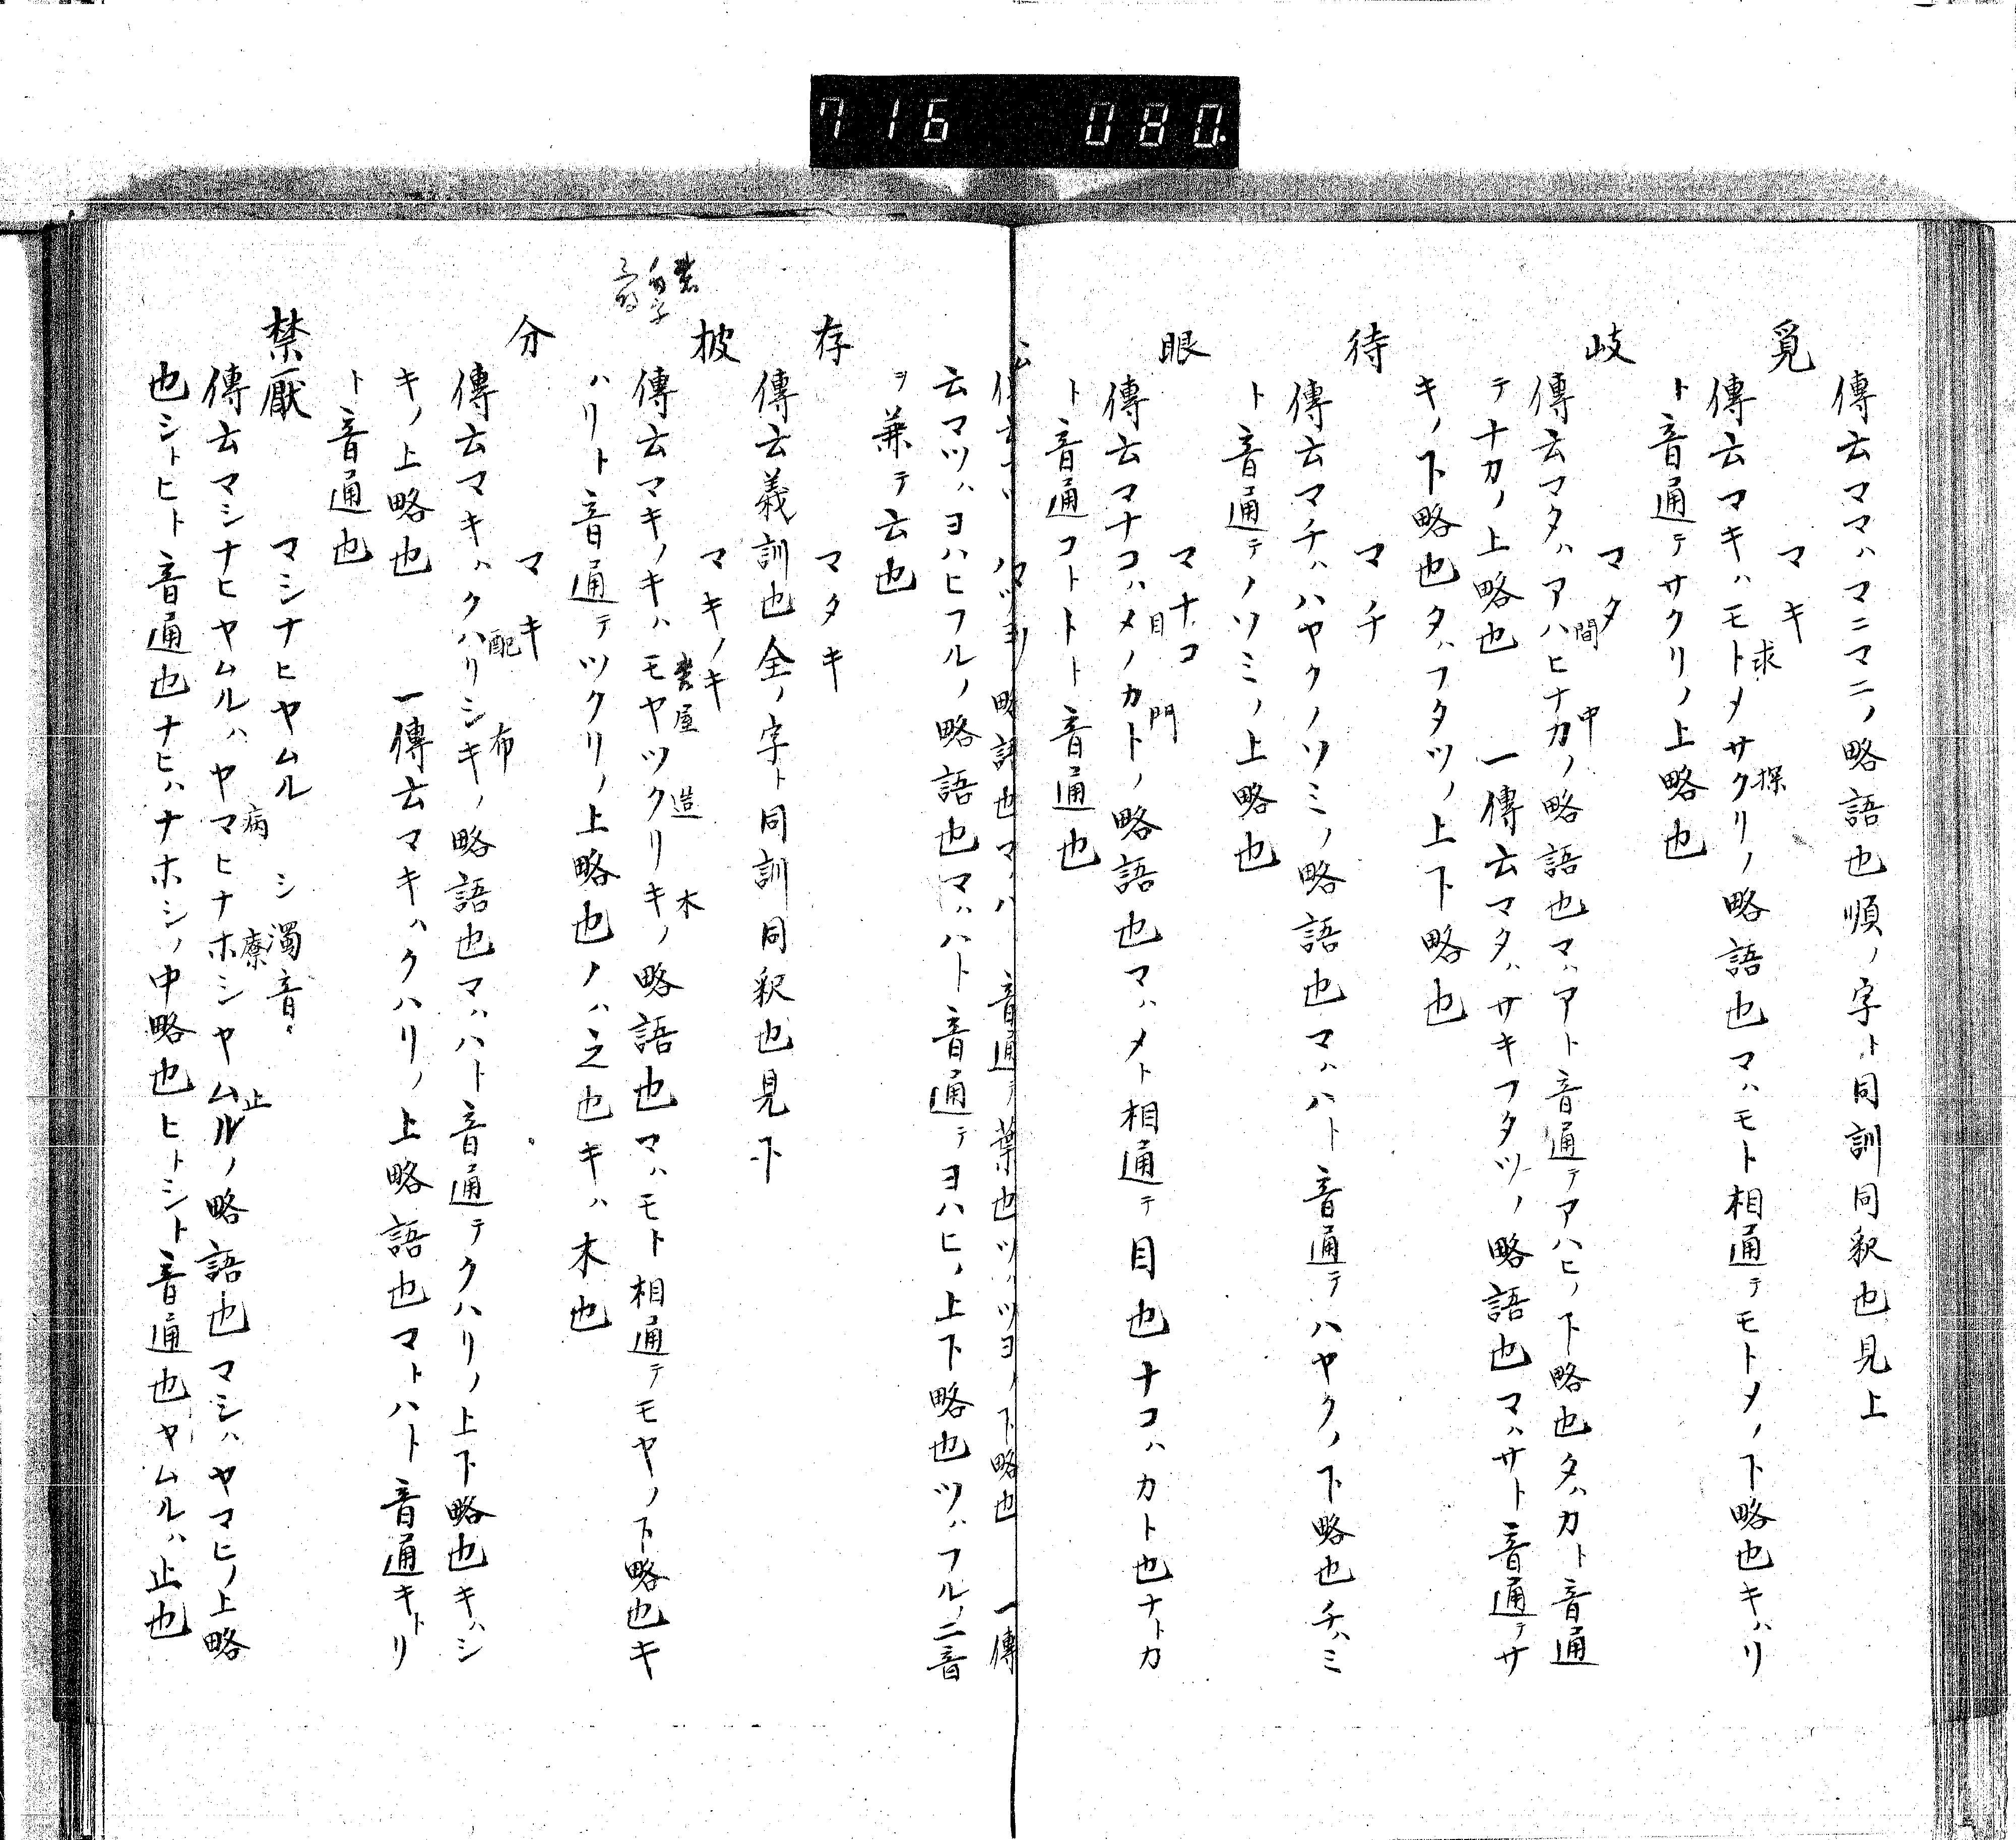 716 080.
傳云マヽハマニマニノ略語也順ノ字ト同訓同釈也見上
覓 マキ
傳云マキハモトメサクリノ略語也マハモト相通テモトメノ下略也キハリ
求 探
ト音通テサクリノ上略也
岐 マタ
傳云マタハアハヒナカノ略語也マハアト音通テアハヒノ下略也タハカト音通
間 中
テナカノ上略也 一傳云マタハサキフタツノ略語也マハサト音通テサ
キノ下略也タハフタツノ上下略也
待 マチ
傳云マチハハヤクノソミノ略語也マハハト音通テハヤクノ下略也チハミ
ト音通テノソミノ上略也
眼 マナコ
傳云マナコハメノカトノ略語也マハメト相通テ目也ナコハカト也ナトカ
目 門
ト音通コトトト音通也
略語也マハハ音通テ葉也ツハツヨノ下略也 一傳
云マツハヨハヒフルノ略語也マハハト音通テヨハヒノ上下略也ツハフルノ二音
ヲ兼テ云也
存 マタキ
傳云義訓也全ノ字ト同訓同釈也見下
披 マキノキ
傳云マキノキハモヤツクリキノ略語也マハモト相通テモヤノ下略也キ
屋 造 木
ハリト音通テツクリノ上略也ノハ之也キハ木也
分 マキ
傳云マキハクハリシキノ略語也マハハト音通テクハリノ上下略也キハシ
配 布
キノ上略也 一傳云マキハクハリノ上略語也マトハト音通キトリ
ト音通也
禁厭 マシナヒヤムル シ濁音
傳云マシナヒヤムルハヤマヒナホシヤムルノ略語也マシハヤマヒノ上略
病 療 止
也シトヒト音通也ナヒハナホシノ中略也ヒトシト音通也ヤムルハ止也